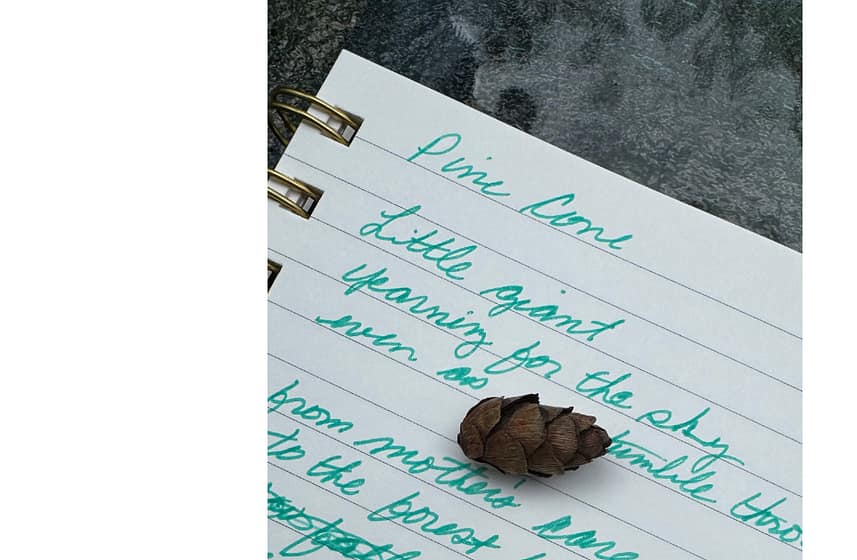 Pine Cone
Little giant
yearning for the sky
even as tumble thro
from mothers' care
to the forest